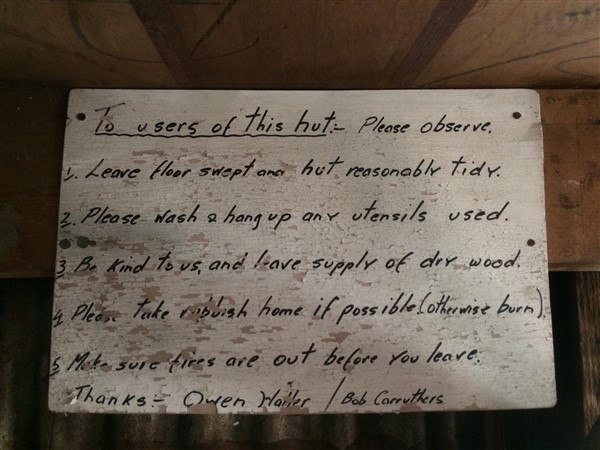 To users of this hut:- Please observe.
1. Leave floor swept and hut reasonably tidy.
2. Please wash & hang up any utensils used.
3 Be kind to us, and leave supply of dry wood.
4 Please take rubbish home if possible. (otherwise burn).
5 Make sure fires are out before you leave.
Thanks:- Owen / Bob Carruthers